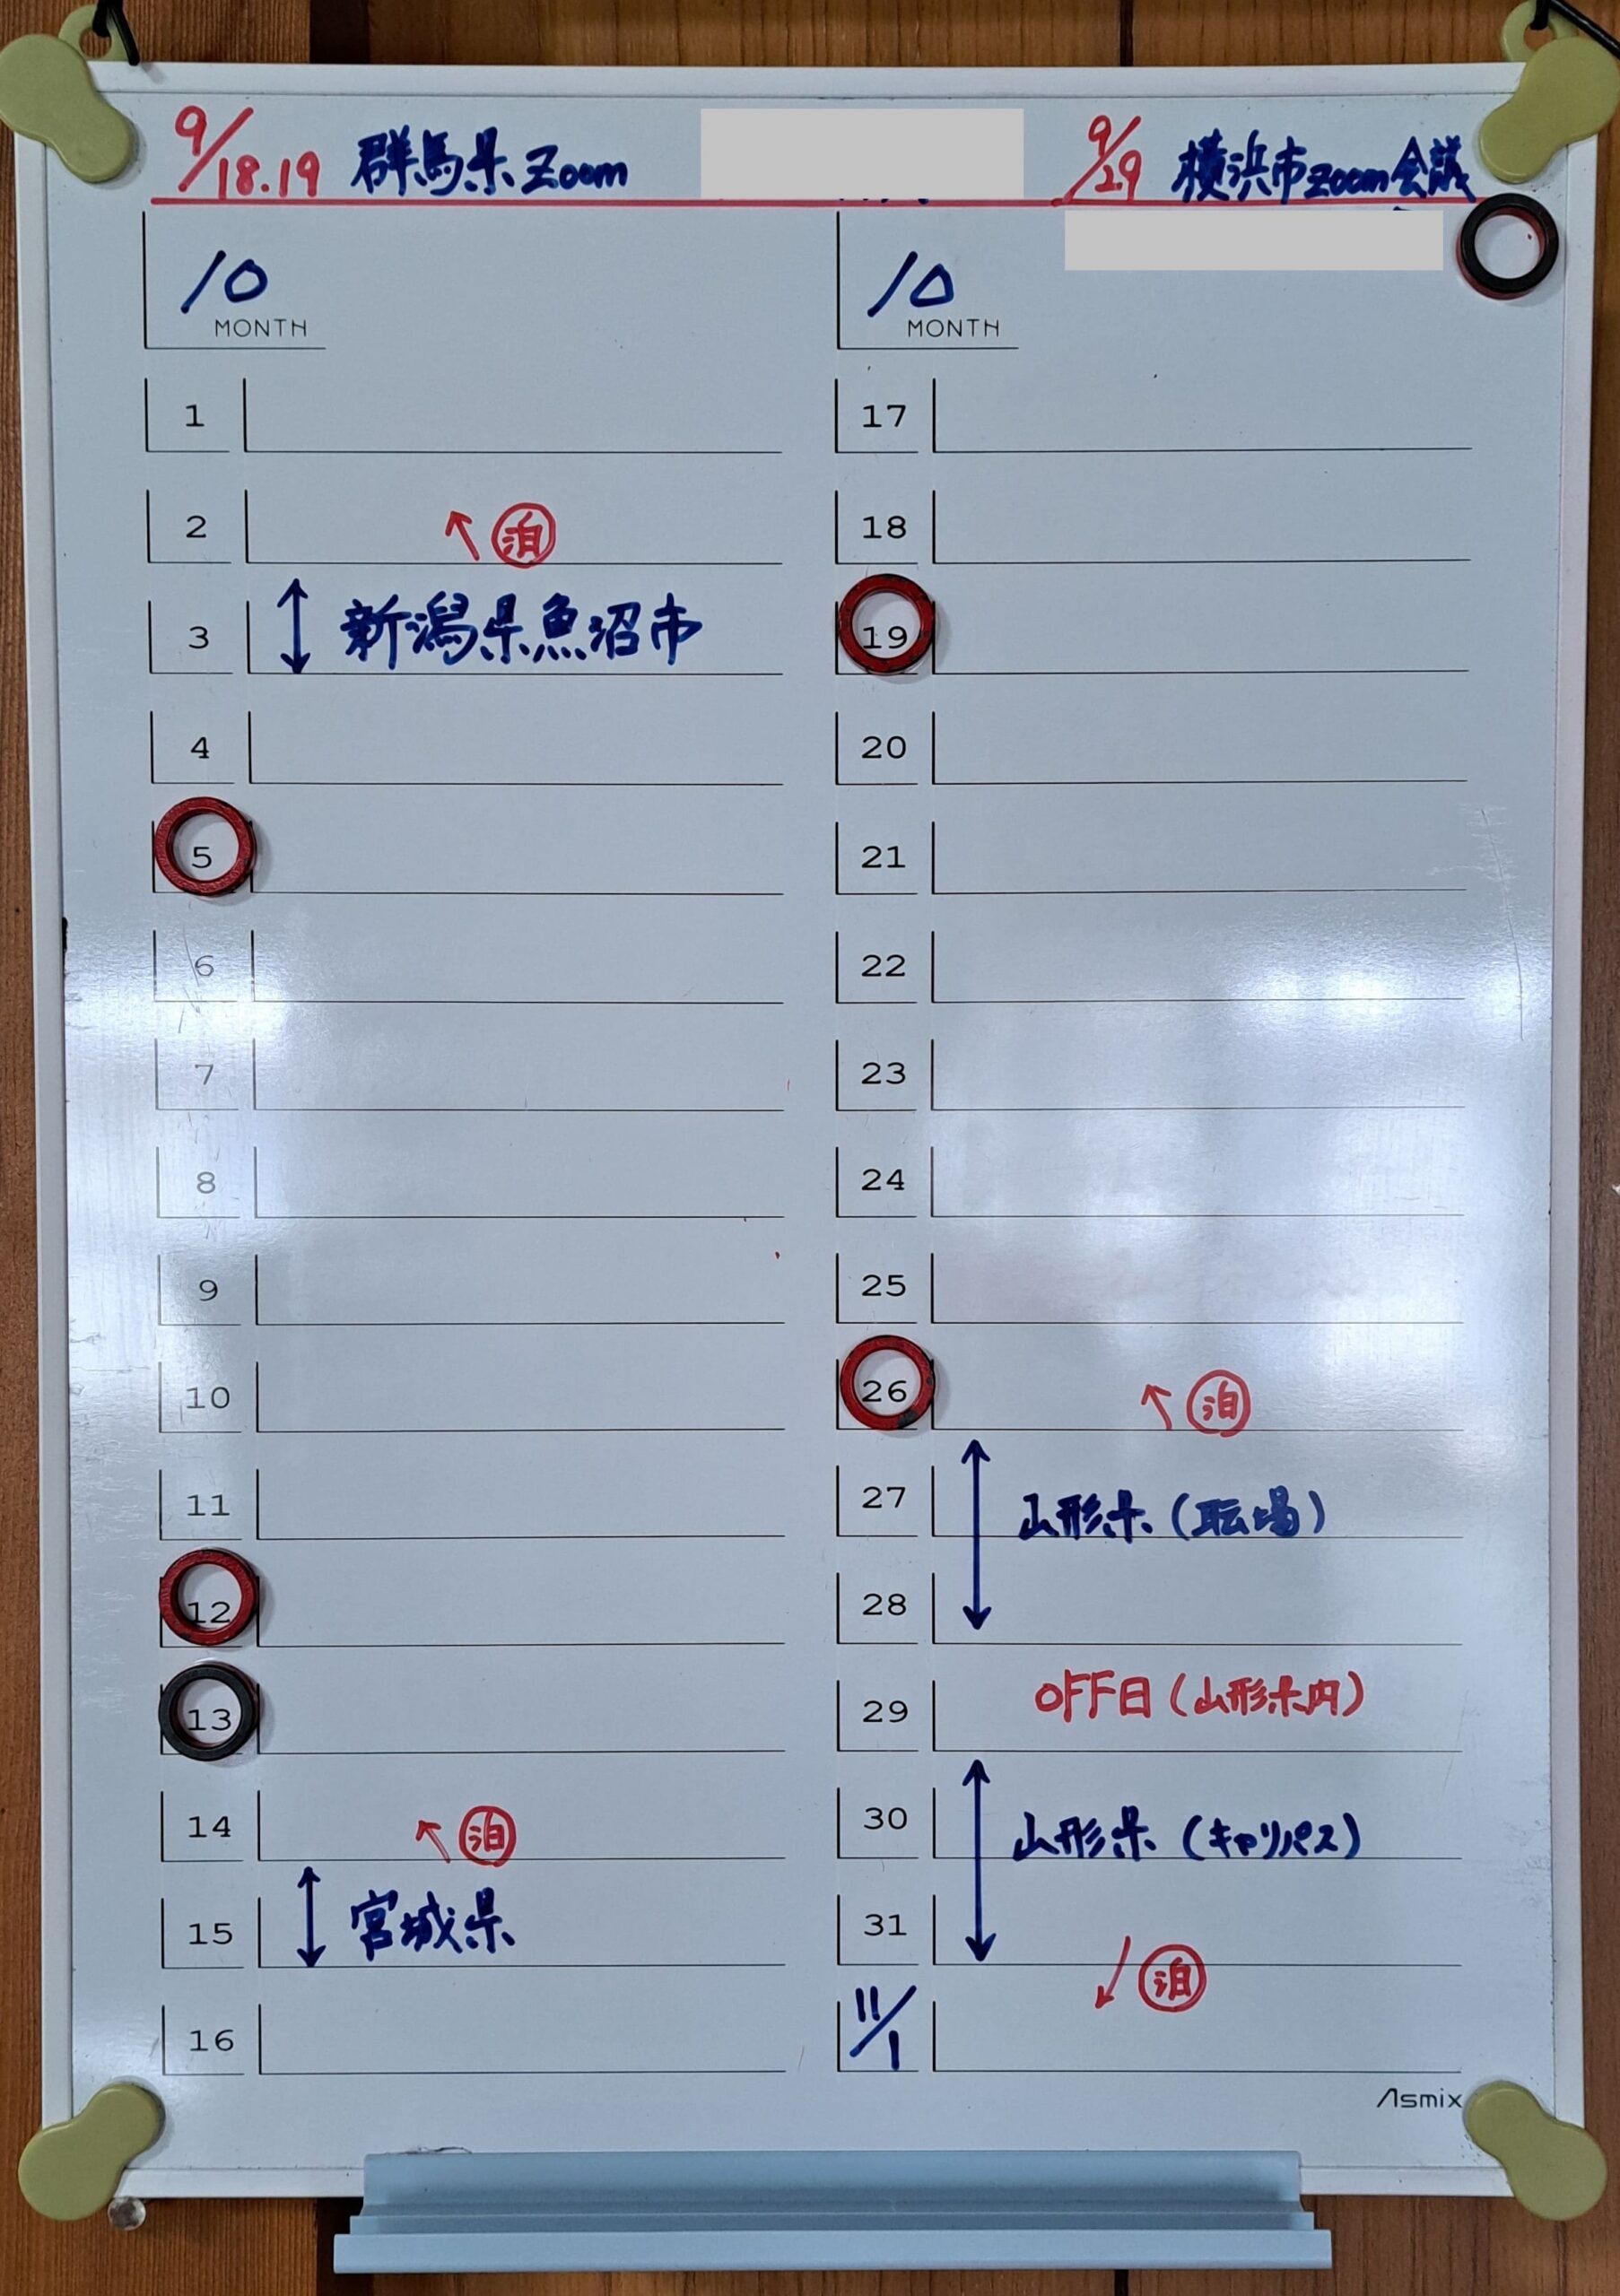 9/18.19 群馬県Zoom
9/29 横浜市zoom会議
10
MONTH
1
2 ↖ 泊
3 ↕ 新潟県魚沼市
4
5
6
7
8
9
10
11
12
13
14 ↖ 泊
15 ↕ 宮城県
16
10
MONTH
17
18
19
20
21
22
23
24
25
26 ↖ 泊
27 ↕ 山形県(職場)
28
29 OFF日(山形県内)
30 ↕ 山形県(キャリパス)
31
↙ 泊
11/1
Asmix